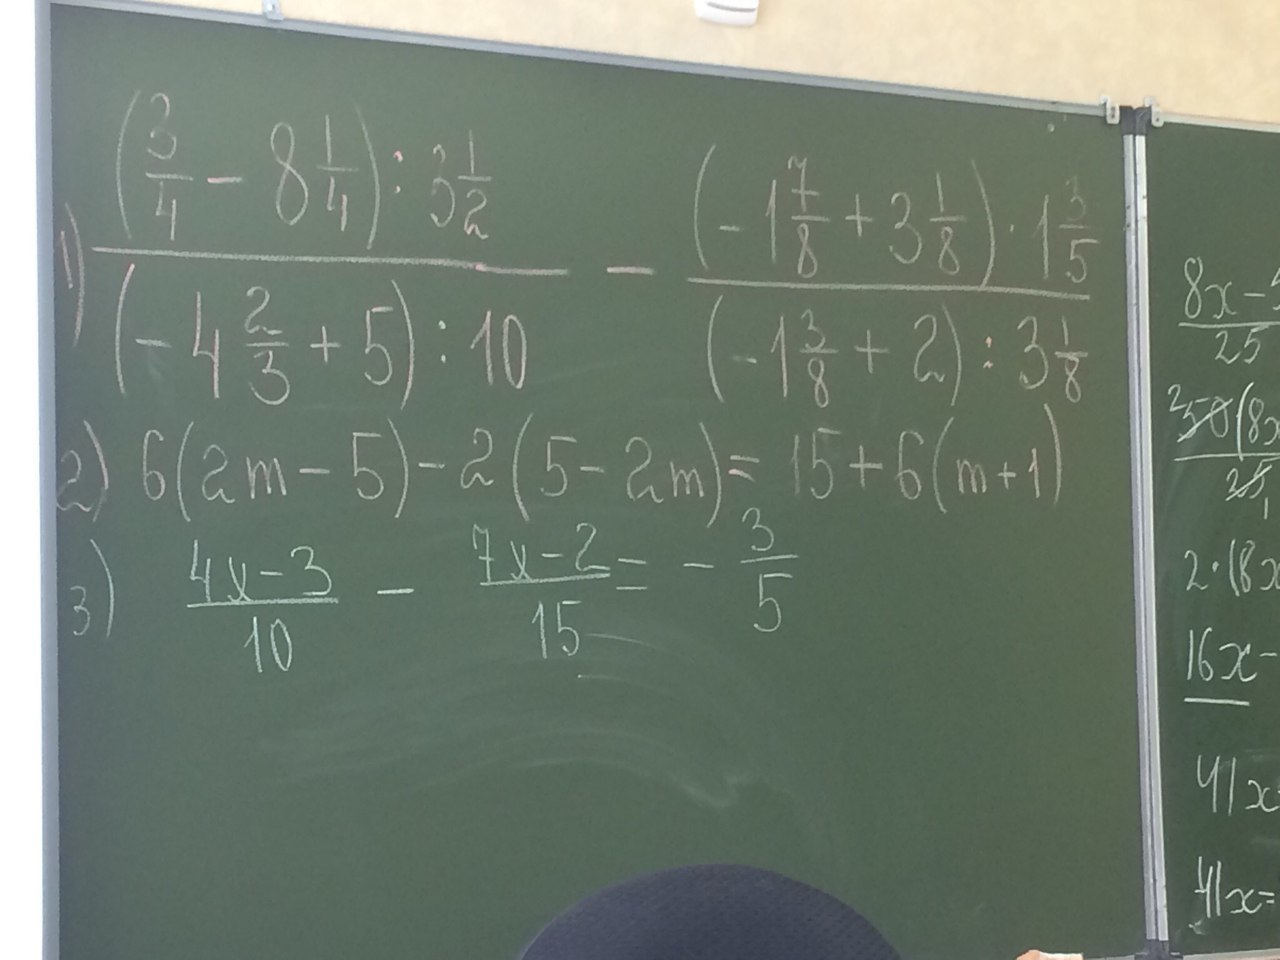 1) ((3/4 - 8 1/4) : 3 1/2) / ((-4 2/3 + 5) : 10) - ((-1 7/8 + 3 1/8) · 1 3/5) / ((-1 3/8 + 2) : 3 1/8)
2) 6(2m - 5) - 2(5 - 2m) = 15 + 6(m + 1)
3) (4x - 3)/10 - (7x - 2)/15 = - 3/5
8x - 
25
2
50(8x
25
1
2·(8x
16x -
41x
41x =